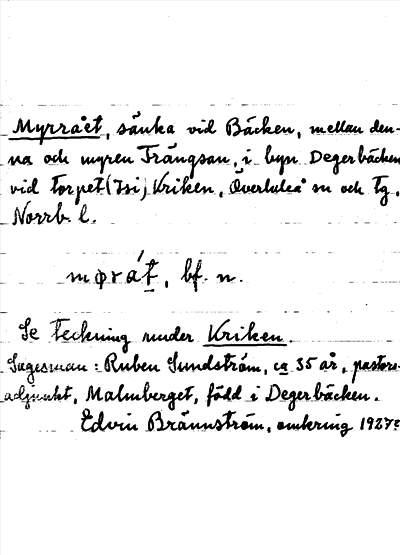 Myrraët, sänka vid Bäcken, mellan den-
na och myren Trängsan, i byn Degerbäcken
vid torpet (Isi) Kriken, Överluleå sn och tg,
Norrb l.
mørát, bf. n.
Se teckning under Kriken.
Sagesman: Ruben Sundström, ca 35 år, pastors-
adjunkt, Malmberget, född i Degerbäcken.
Edvin Brännström, omkring 1927?